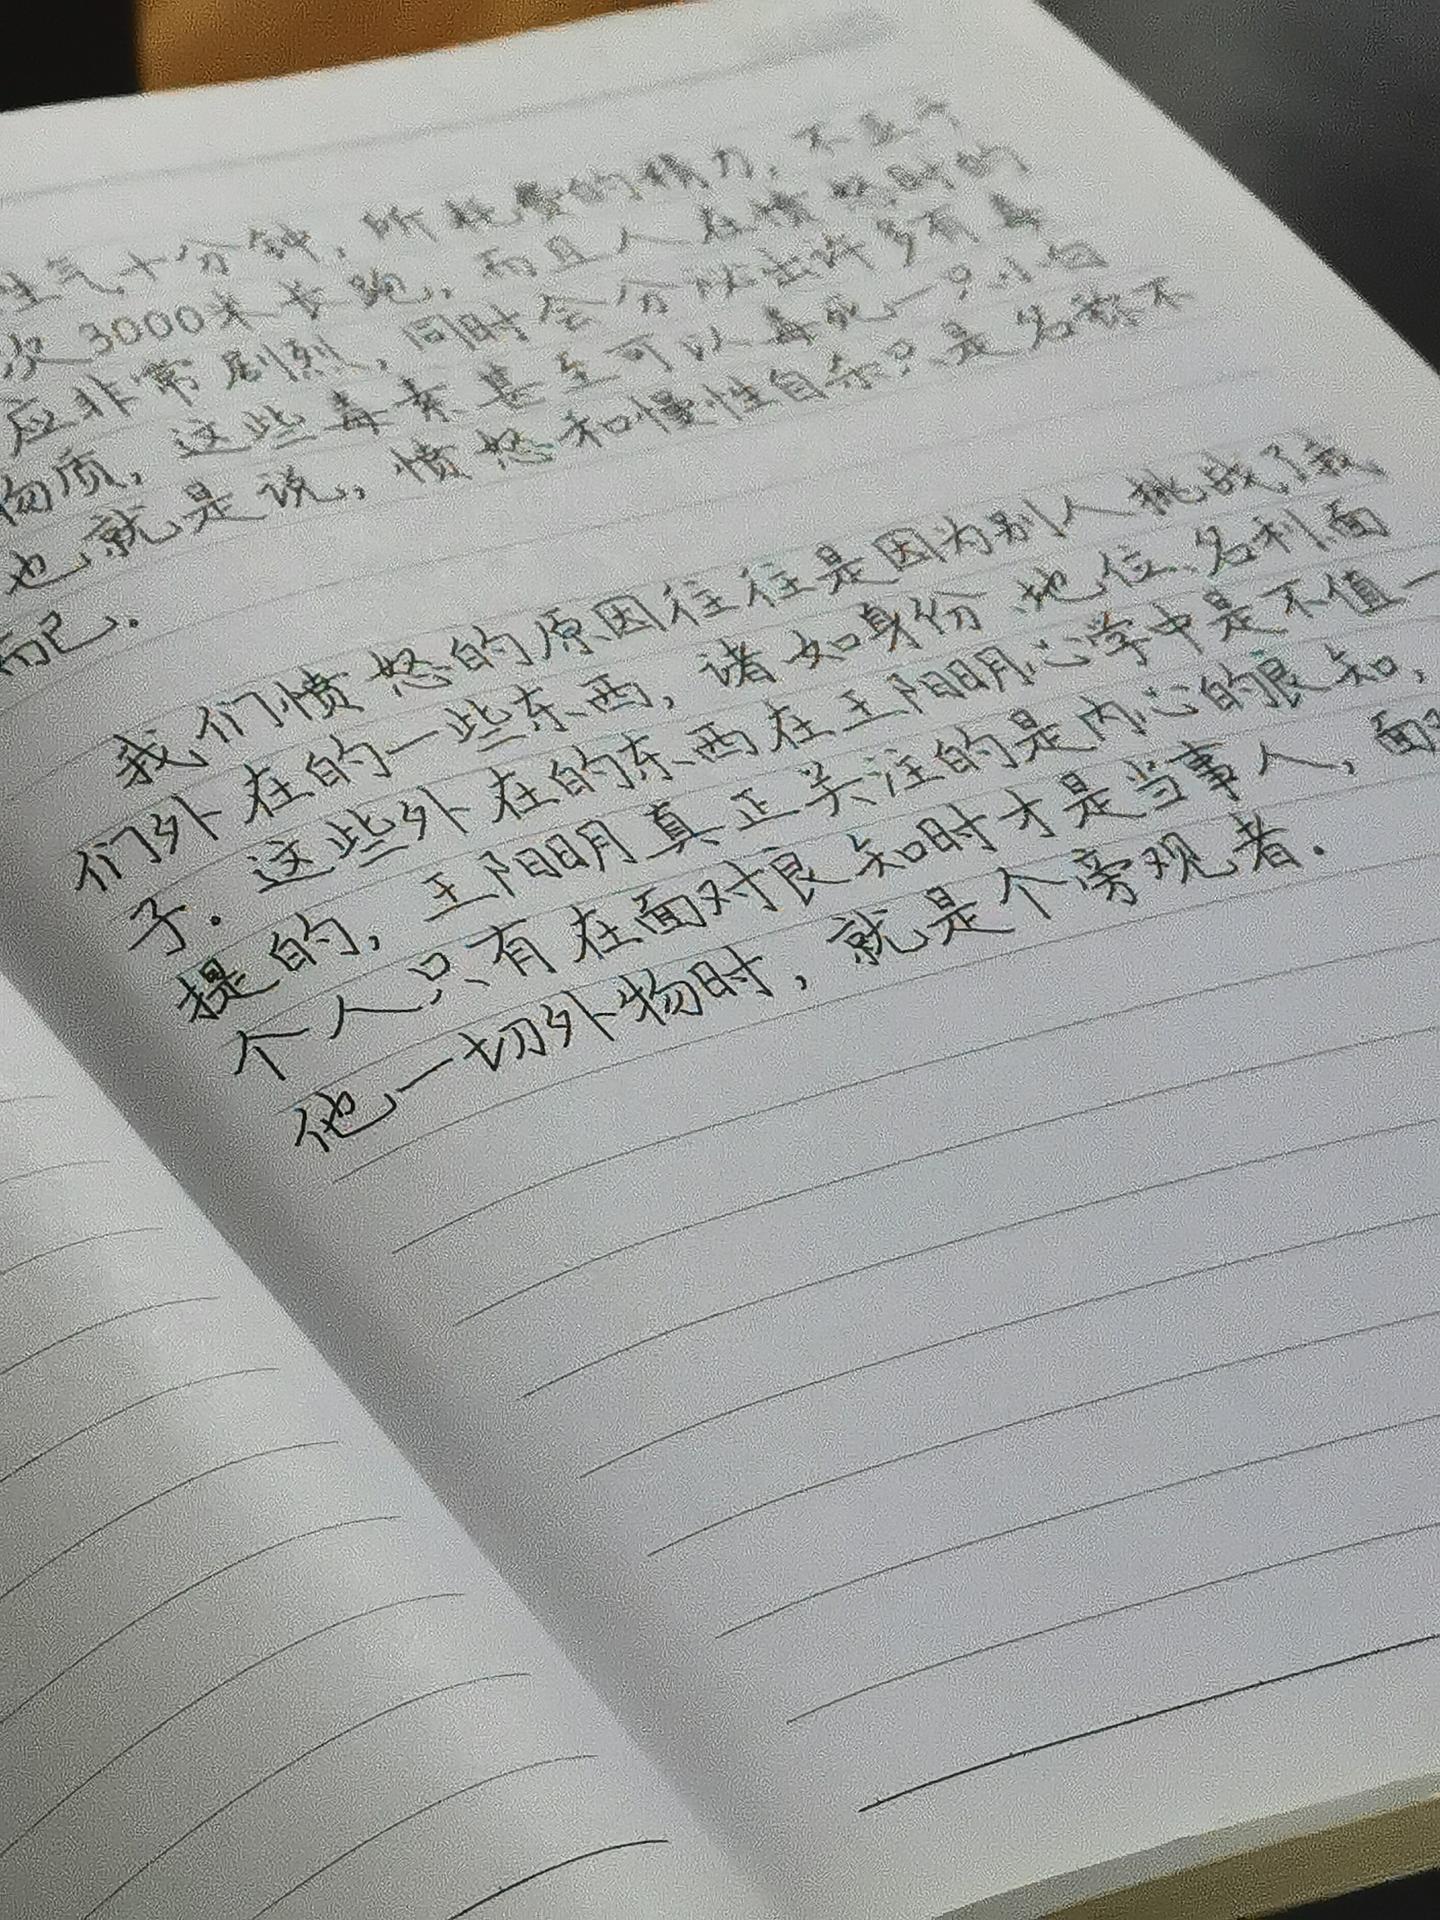 生气十分钟，所耗费的精力，不亚于
次3000米长跑，而且人在愤怒时的
应非常剧烈，同时会分泌出许多有毒
物质，这些毒素甚至可以毒死一只小白
也就是说，愤怒和慢性自杀只是名称不
而已.
我们愤怒的原因往往是因为别人挑战了我
们外在的一些东西，诸如身份、地位、名利面
子.这些外在的东西在王阳明心学中是不值一
提的，王阳明真正关注的是内心的良知，
个人只有在面对良知时才是当事人，面对
他一切外物时，就是个旁观者.